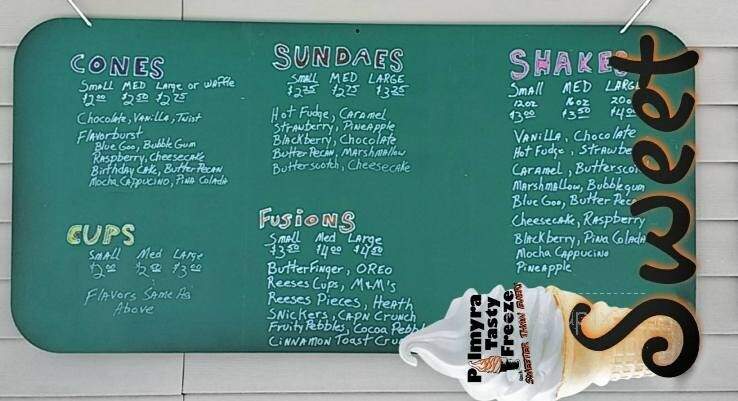 CONES
Small MED Large or waffle
$2.00 $2.50 $2.75
Chocolate, Vanilla, Twist
Flavorburst
Blue Goo, Bubble Gum
Raspberry, Cheesecake
Birthday Cake, Butter Pecan
Mocha Cappucino, Pina Colada
CUPS
Small Med Large
$2.00 $2.50 $3.00
Flavors Same As
Above
SUNDAES
Small MED LARGE
$2.25 $2.75 $3.25
Hot Fudge, Caramel
Strawberry, Pineapple
Blackberry, Chocolate
Butter Pecan, Marshmallow
Butterscotch, Cheesecake
Fusions
Small Med Large
$3.50 $4.00 $4.50
Butterfinger, OREO
Reeses Cups, M&M's
Reeses Pieces, Heath
Snickers, Capn Crunch
Fruity Pebbles, Cocoa Pebbl
Cinnamon Toast Cru
SHAKES
Small MED LARGE
12oz 16oz 20o
$3.00 $3.50 $4.0
Vanilla, Chocolate
Hot Fudge, Strawbe
Caramel, Butterscot
Marshmallow, Bubblegum
Blue Goo, Butter Peca
Cheesecake, Raspberry
Blackberry, Pina Colada
Mocha Cappucino
Pineapple
Sweet
Palmyra
Tasty
Freeze
SWEETER THAN EVER!